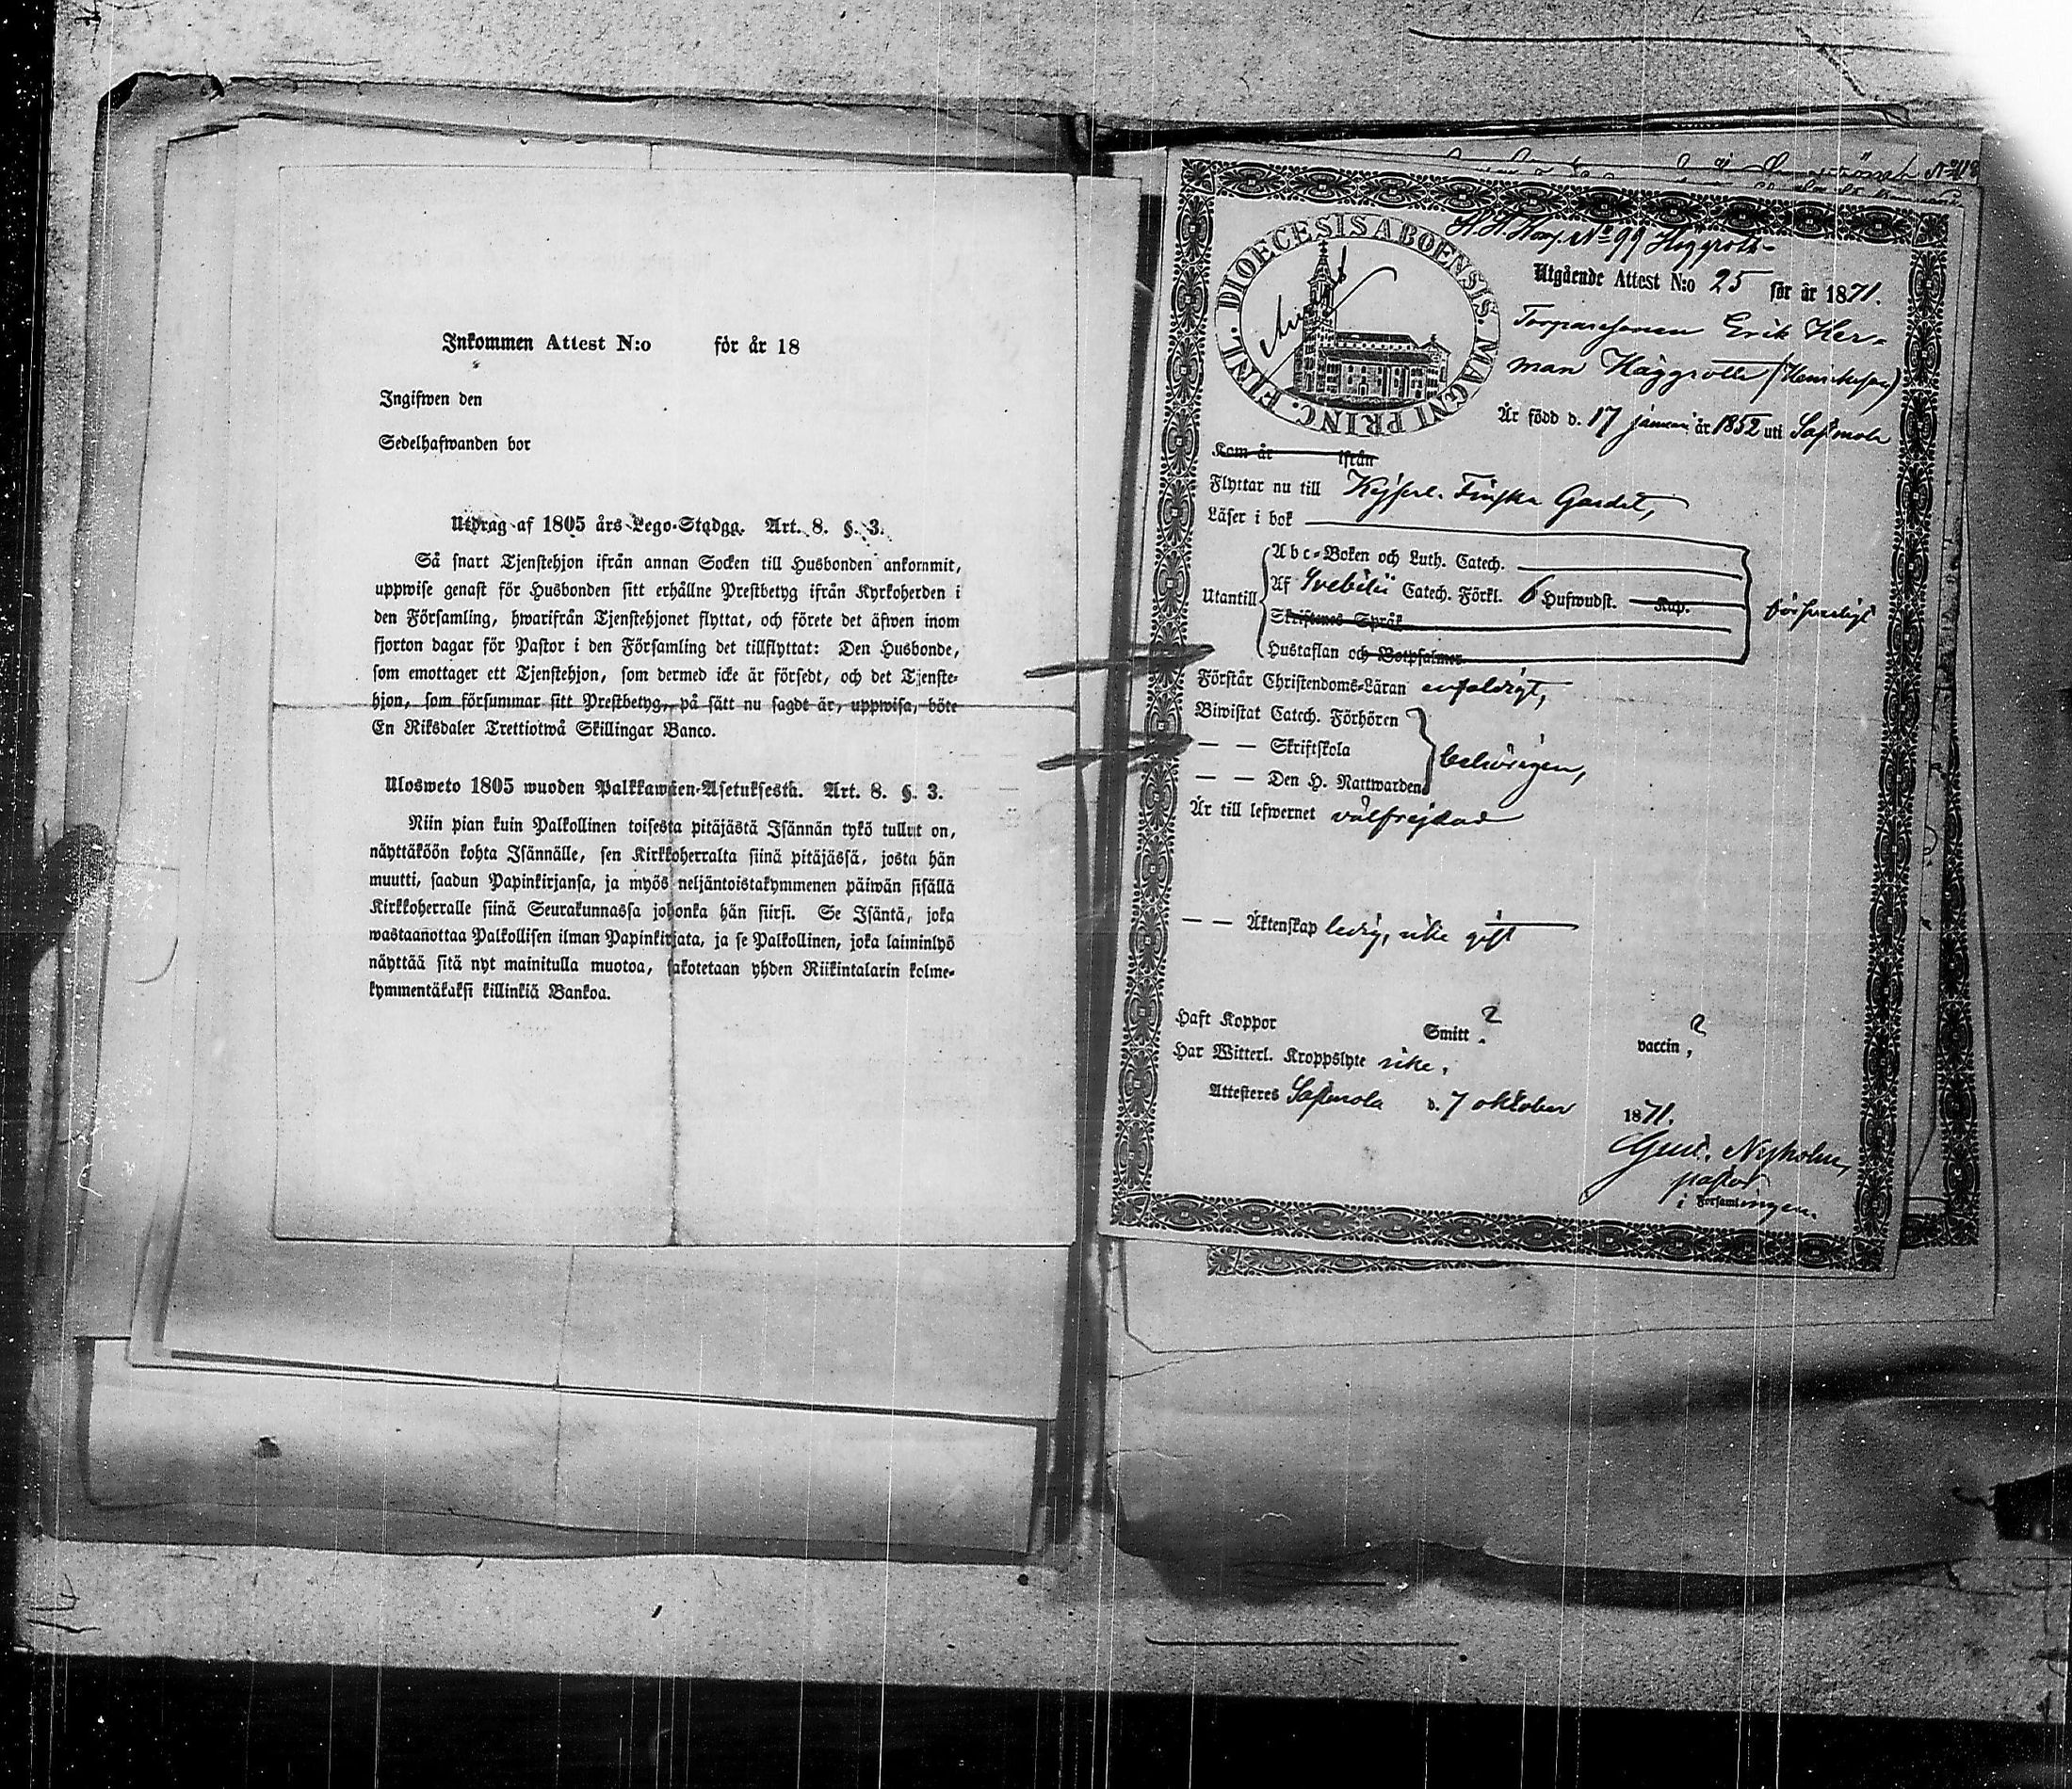 Inkommen Attest N:o för år 18
Ingifwen den
Sedelhafwanden bor
Utdrag af 1805 års Lego-Stadga. Art. 8. §. 3.
Så snart Tjenstehjon ifrån annan Socken till Husbonden ankommit,
uppwise genast för Husbonden sitt erhållne Prestbetyg ifrån Kyrkoherden i
den Församling, hwarifrån Tjenstehjonet flyttat, och förete det äfwen inom
fjorton dagar för Pastor i den Församling det tillflyttat: Den Husbonde,
som emottager ett Tjenstehjon, som dermed icke är försedt, och det Tjenste-
hjon, som försummar sitt Prestbetyg, på sätt nu sagdt är, uppwisa, böte
En Riksdaler Trettiotwå Skillingar Banco.
Ulosweto 1805 wuoden Palkkawäen-Asetuksesta. Art. 8. §. 3.
Niin pian kuin Palkollinen toisesta pitäjästä Isännän tykö tullut on,
näyttäköön kohta Isännälle, sen Kirkkoherralta siinä pitäjässä, josta hän
muutti, saadun Papinkirjansa, ja myös neljäntoistakymmenen päiwän sisällä
Kirkkoherralle siinä Seurakunnassa johonka hän siirsi. Se Isäntä, joka
wastaanottaa Palkollisen ilman Papinkirjata, ja se Palkollinen, joka laiminlyö
näyttää sitä nyt mainitulla muotoa, sakotetaan yhden Riikintalarin kolme-
kymmentäkaksi killinkiä Bankoa.
No 99 Häggroth
DIOECESIS ABOENSIS. MAGNI PRINC. FINL.
Utgående Attest N:o 25 för år 1871.
Torparesonen Erik Her-
man Häggroth (Henriksson)
Är född d. 17 januari år 1852 uti Sastmola
Kom år ifrån
Flyttar nu till Kejserl. Finska Gardet,
Läser i bok
Abc-Boken och Luth. Catech.
Utantill Af Svebilii Catech. Förkl. 6 Hufwudst. Kap. försvarligt
Skriftenes Språk
Hustaflan och Botpsalmer
Förstår Christendoms-Läran enfaldigt,
Biwistat Catech. Förhören
— — Skriftskola behörigen,
— — Den H. Nattwarden
Är till lefwernet välfrejdad
— — Äktenskap ledig, icke gift
Haft Koppor Smitt ? vaccin ?
Har Witterl. Kroppslyte icke.
Attesteres Sastmola d. 7 oktober 1871.
Gust. Nyholm,
pastor
i Församlingen.